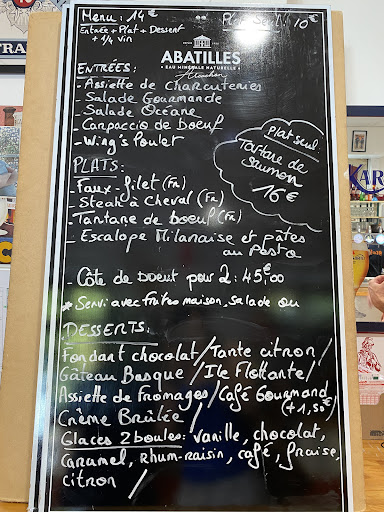 Menu: 14€
Entrée + Plat + Dessert
+ 1/4 vin
Plat seul: 10€
ABATILLES
EAU MINÉRALE NATURELLE
Arcachon
ENTRÉES:
- Assiette de charcuteries
- Salade Gourmande
- Salade Océane
- Carpaccio de Boeuf
- Wing's Poulet
Plat seul:
Tartare de
saumon
16€
PLATS:
- Faux-filet (FR)
- Steak à cheval (FR)
- Tartare de boeuf (FR)
- Escalope Milanaise et pâtes
au Pesto
- Côte de boeuf pour 2: 45€,00
* Servi avec frites maison, salade ou
DESSERTS:
Fondant chocolat / Tarte citron /
Gâteau Basque / Ile Flottante /
Assiette de Fromages / Café Gourmand
(+1,50€)
Crème Brûlée /
Glaces 2 boules: Vanille, chocolat,
Caramel, Rhum-raisin, café, fraise,
citron /
KAR